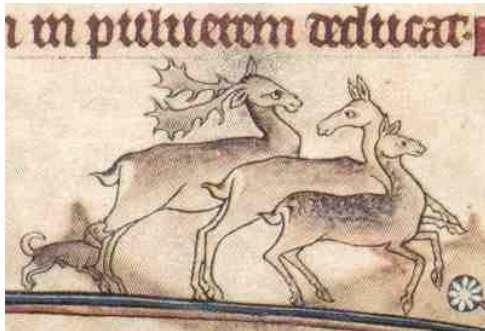 in puluerem deducat.